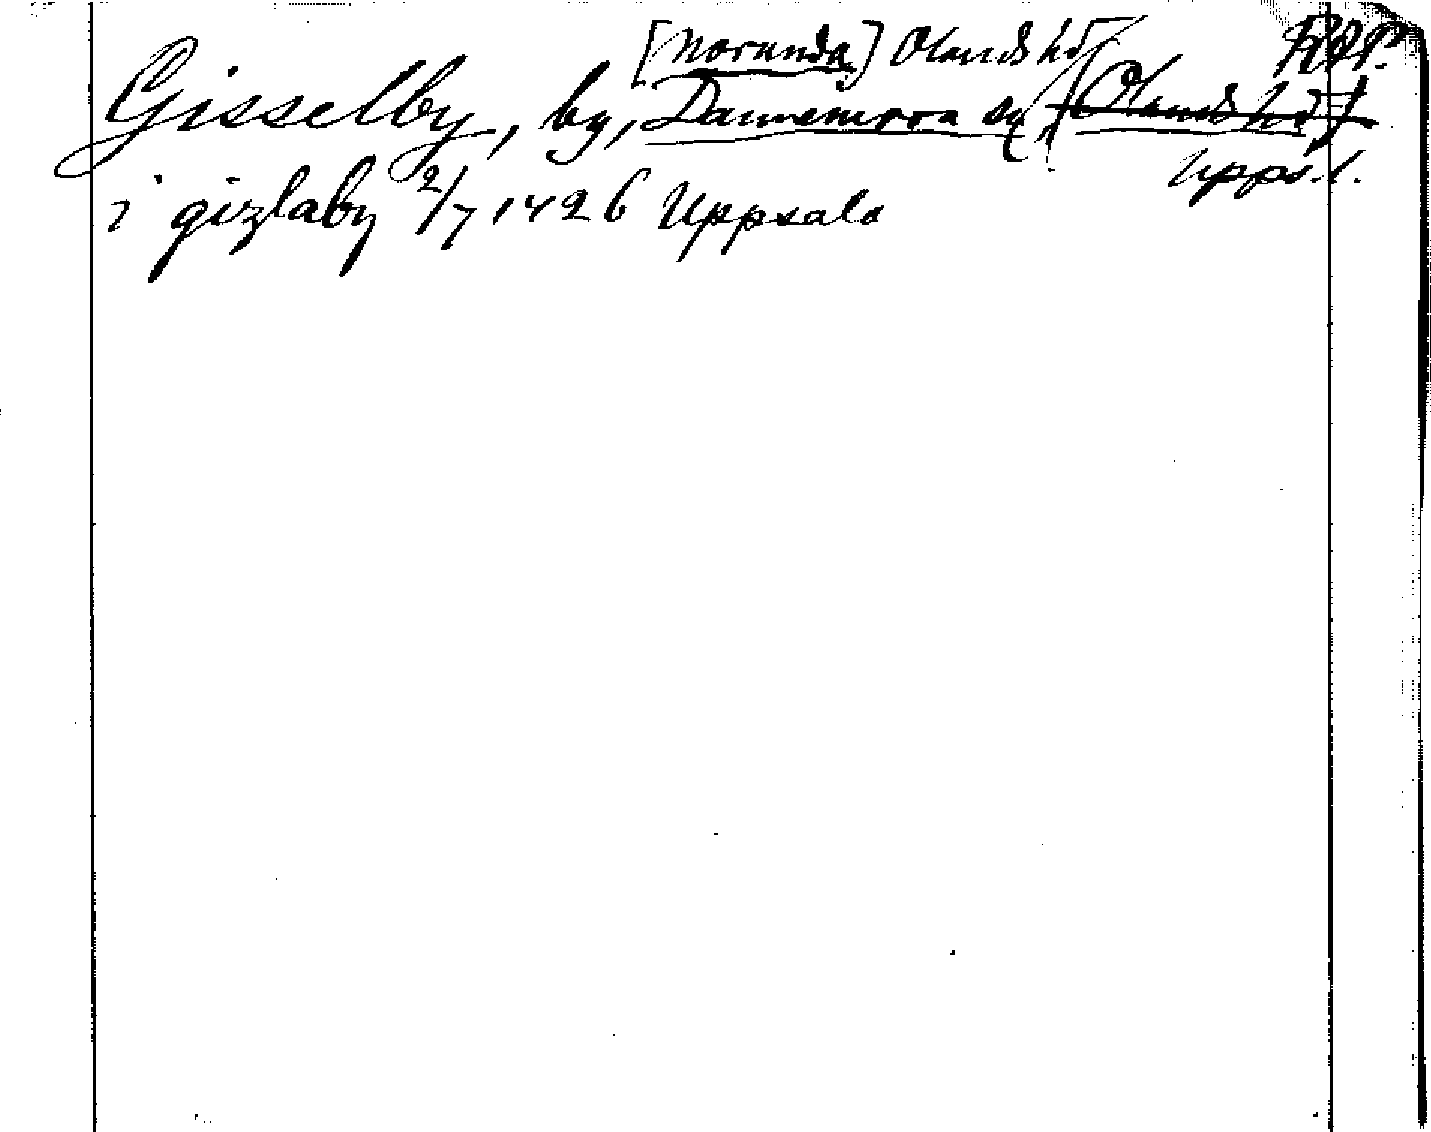 [Norunda] Olands hd
Gisselby, by, Dannemora sn (Olands hd)
Upps. l.
i gizlaby 2/7 1426 Uppsala